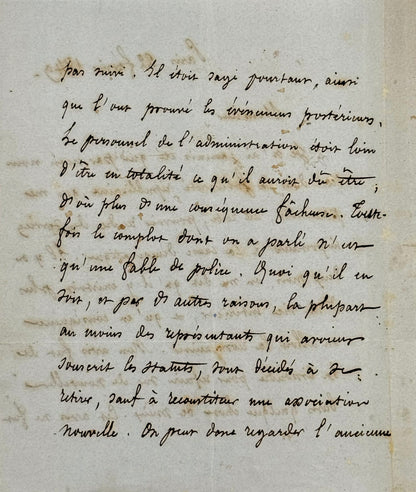 pas suivi. Il étoit sage pourtant, ainsi
que l'ont prouvé les événemens postérieurs.
Le personnel de l'administration étoit loin
d'être en totalité ce qu'il auroit dû être;
d'où plus d'une conséquence fâcheuse. Toute-
fois le complot dont on a parlé n'est
qu'une fable de police. Quoi qu'il en
soit, et par d'autres raisons, la plupart
au moins des représentants qui avoient
souscrit les statuts, sont décidés à se
retirer, sauf à reconstituer une association
nouvelle. On peut donc regarder l'ancienne